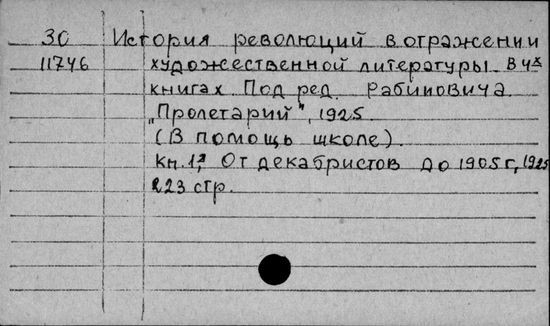 30 История революций в отражении
11746 художественной литературы. В 4х
книгах Под ред. Рабиновича.
"Пролетарий", 1925.
(В помощь школе).
Кн.1я, От декабристов до 1905 г., 1925
223 стр.